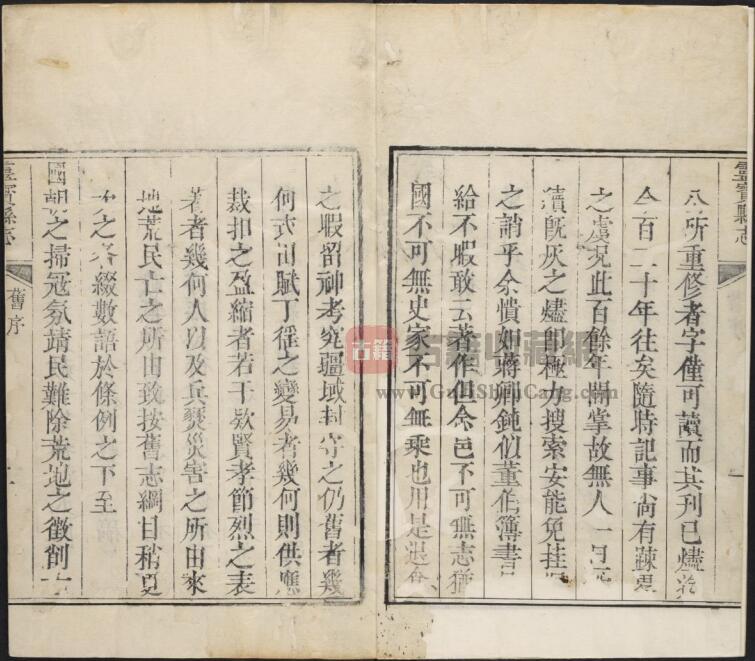 靈寶縣志
所重修者字僅可讀而其刊已燼
今百二十年往矣隨時記事尚有疎
之處況此百餘年間掌故無人一
既灰之燼即極力搜索安能免挂
之誚乎余憒如蔣卿鈍似董伯簿書
給不暇敢云著作但念邑不可無志
國不可無史家不可無乘也用是退食
之暇留神考究疆域封守之仍舊者幾
何戎田賦丁徭之變易者幾何則供應
裁扣之盈縮者若干欵賢孝節烈之表
著者幾何人以及兵燹災害之所由來
地荒民亡之所由致按舊志綱目稍更
之各綴數語於條例之下至
國朝之掃寇氛靖民難除荒地之徵
靈寶縣志
舊序
古籍收藏網
www.GuJiShouCang.com